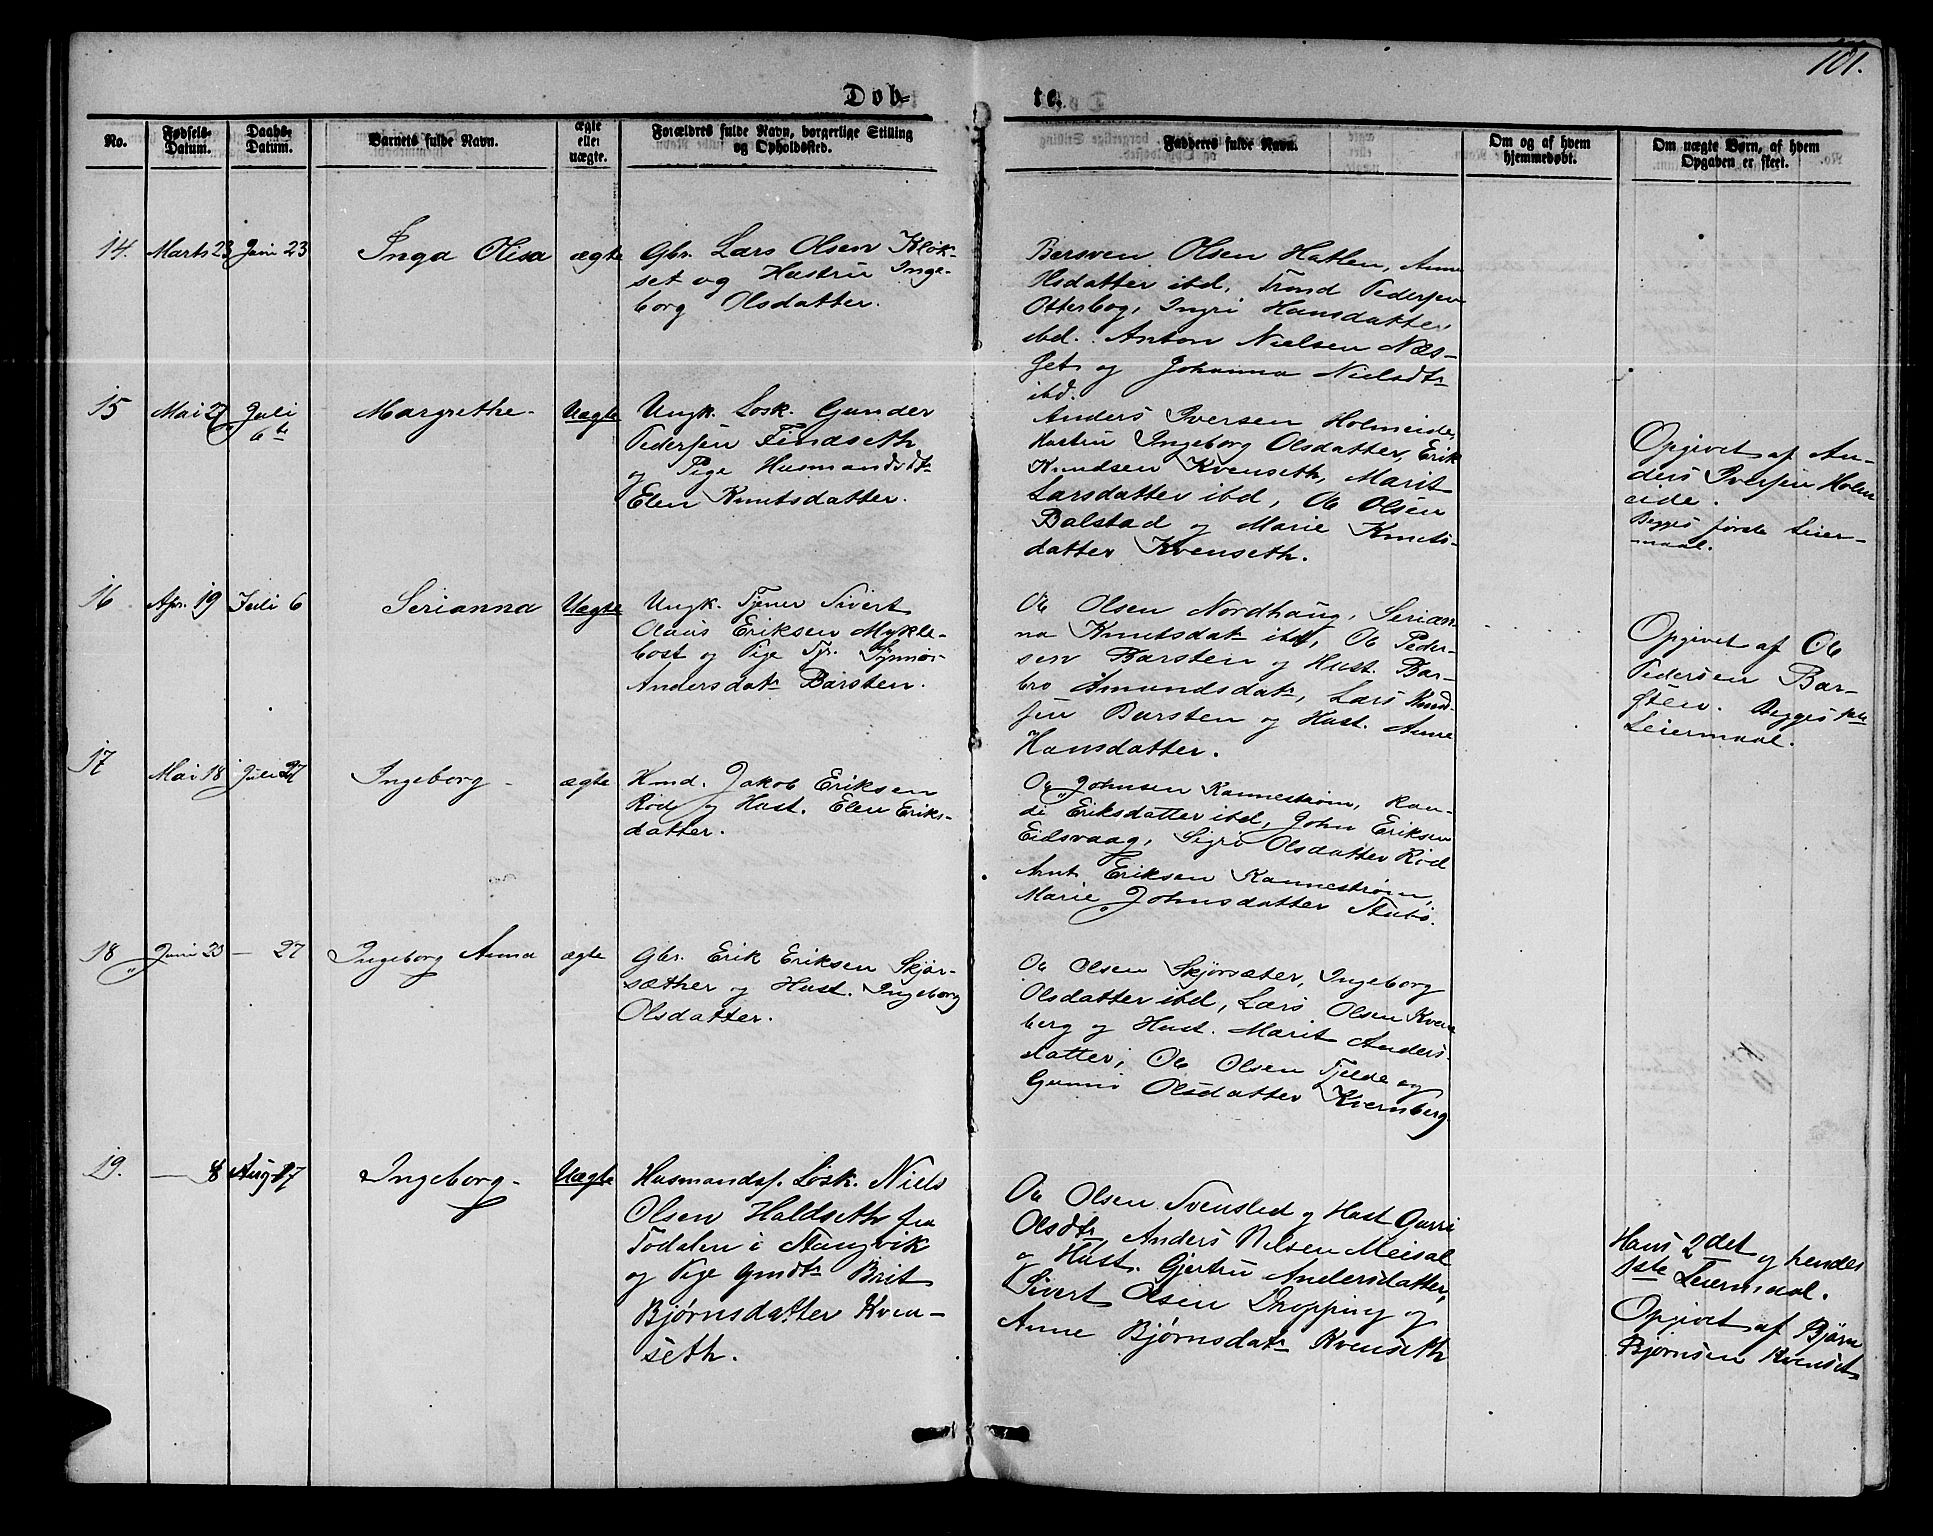 101.
Døb-
te.
No.
Fødsels-
Datum.
Daabs-
Datum.
Barnets fulde Navn.
ægte
eller
uægte.
Forældres fulde Navn, borgerlige Stilling
og Opholdssted.
Fadderes fulde Navn.
Om og af hvem
hjemmedøbt.
Om uægte Børn, af hvem
Opgaven er skeet.
14.
Marts 23
Juni 23
Inga Olisa
ægte
Gbr. Lars Olsen Kløk-
set og Hustru Inge-
borg Olsdatter.
Bersven Olsen Hatlen, Anne
Olsdatter ibd, Trond Pedersen
Otterbog, Ingri Hansdatter
ibd. Anton Nielsen Næs-
set og Johanna Nielsdtr
ibd.
15
Mai 27
Juli
6te
Margrethe
Uægte
Ungk. Losk. Gunder
Pedersen Findseth
og Pige Husmandsdtr
Elen Knutsdatter.
Anders Iversen Holmeide,
Hustru Ingeborg Olsdatter, Erik
Knudsen Kvenseth, Marit
Larsdatter ibd, Ole Olsen
Balstad og Marie Knuts-
datter Kvenseth.
Opgivet af An-
ders Iversen Holm
eide.
Begges første Leier-
maal.
16
Apr. 19
Juli 6
Serianna
Uægte
Ungk. Tjener Sivert
Olaus Eriksen Mykle-
bost og Pige Tj. Synnøv
Andersdatr Barsten.
Ole Olsen Nordhaug, Serian-
na Knutsdatr ibd, Ole Peder-
sen Barsten og Hust. Bar-
bro Amundsdatr, Lars Knud-
sen Barsten og Hust. Anne
Hansdatter.
Opgivet af Ole
Pedersen Bar-
sten. Begges 1ste
Leiermaal.
17
Mai 18
Juli 27
Ingeborg
ægte
Hmd. Jakob Eriksen
Rød og Hust. Elen Eriks-
datter.
Ole Johnsen Rannestrøm, Ran-
di Eriksdatter ibd, John Eriksen
Eidsvaag, Sigri Olsdatter Rød
Arnt Eriksen Rannestrøm,
Marie Johnsdatter Stubø.
18
Juni 20
— 27
Ingeborg Anna
ægte
Gbr. Erik Eriksen Skjør-
sæther og Hust. Ingeborg
Olsdatter.
Ole Olsen Skjørsæter, Ingeborg
Olsdatter ibd, Lars Olsen Kvern
berg og Hust. Marit Anders-
datter, Ole Olsen Tjelde og
Olsdatter Kvernberg
19.
— 8
Aug 17
Ingeborg
Uægte
Husmandsf. Løsk. Niels
Olsen Haldseth fra
Todalen i Stangvik
og Pige Gmdtr Brit
Bjørnsdatter Kven-
seth.
Ole Olsen Svensled og Hust Gurri
Olsdtr Anders Nilsen Meisal
og Hust. Gjertru Andersdatter,
Sivert Olsen Dropping og
Anne Bjørnsdatr Kvenseth
Hans 2det og hendes
1ste Leiermaal.
Opgivet af Bjørn
Bjørnsen Kvenset